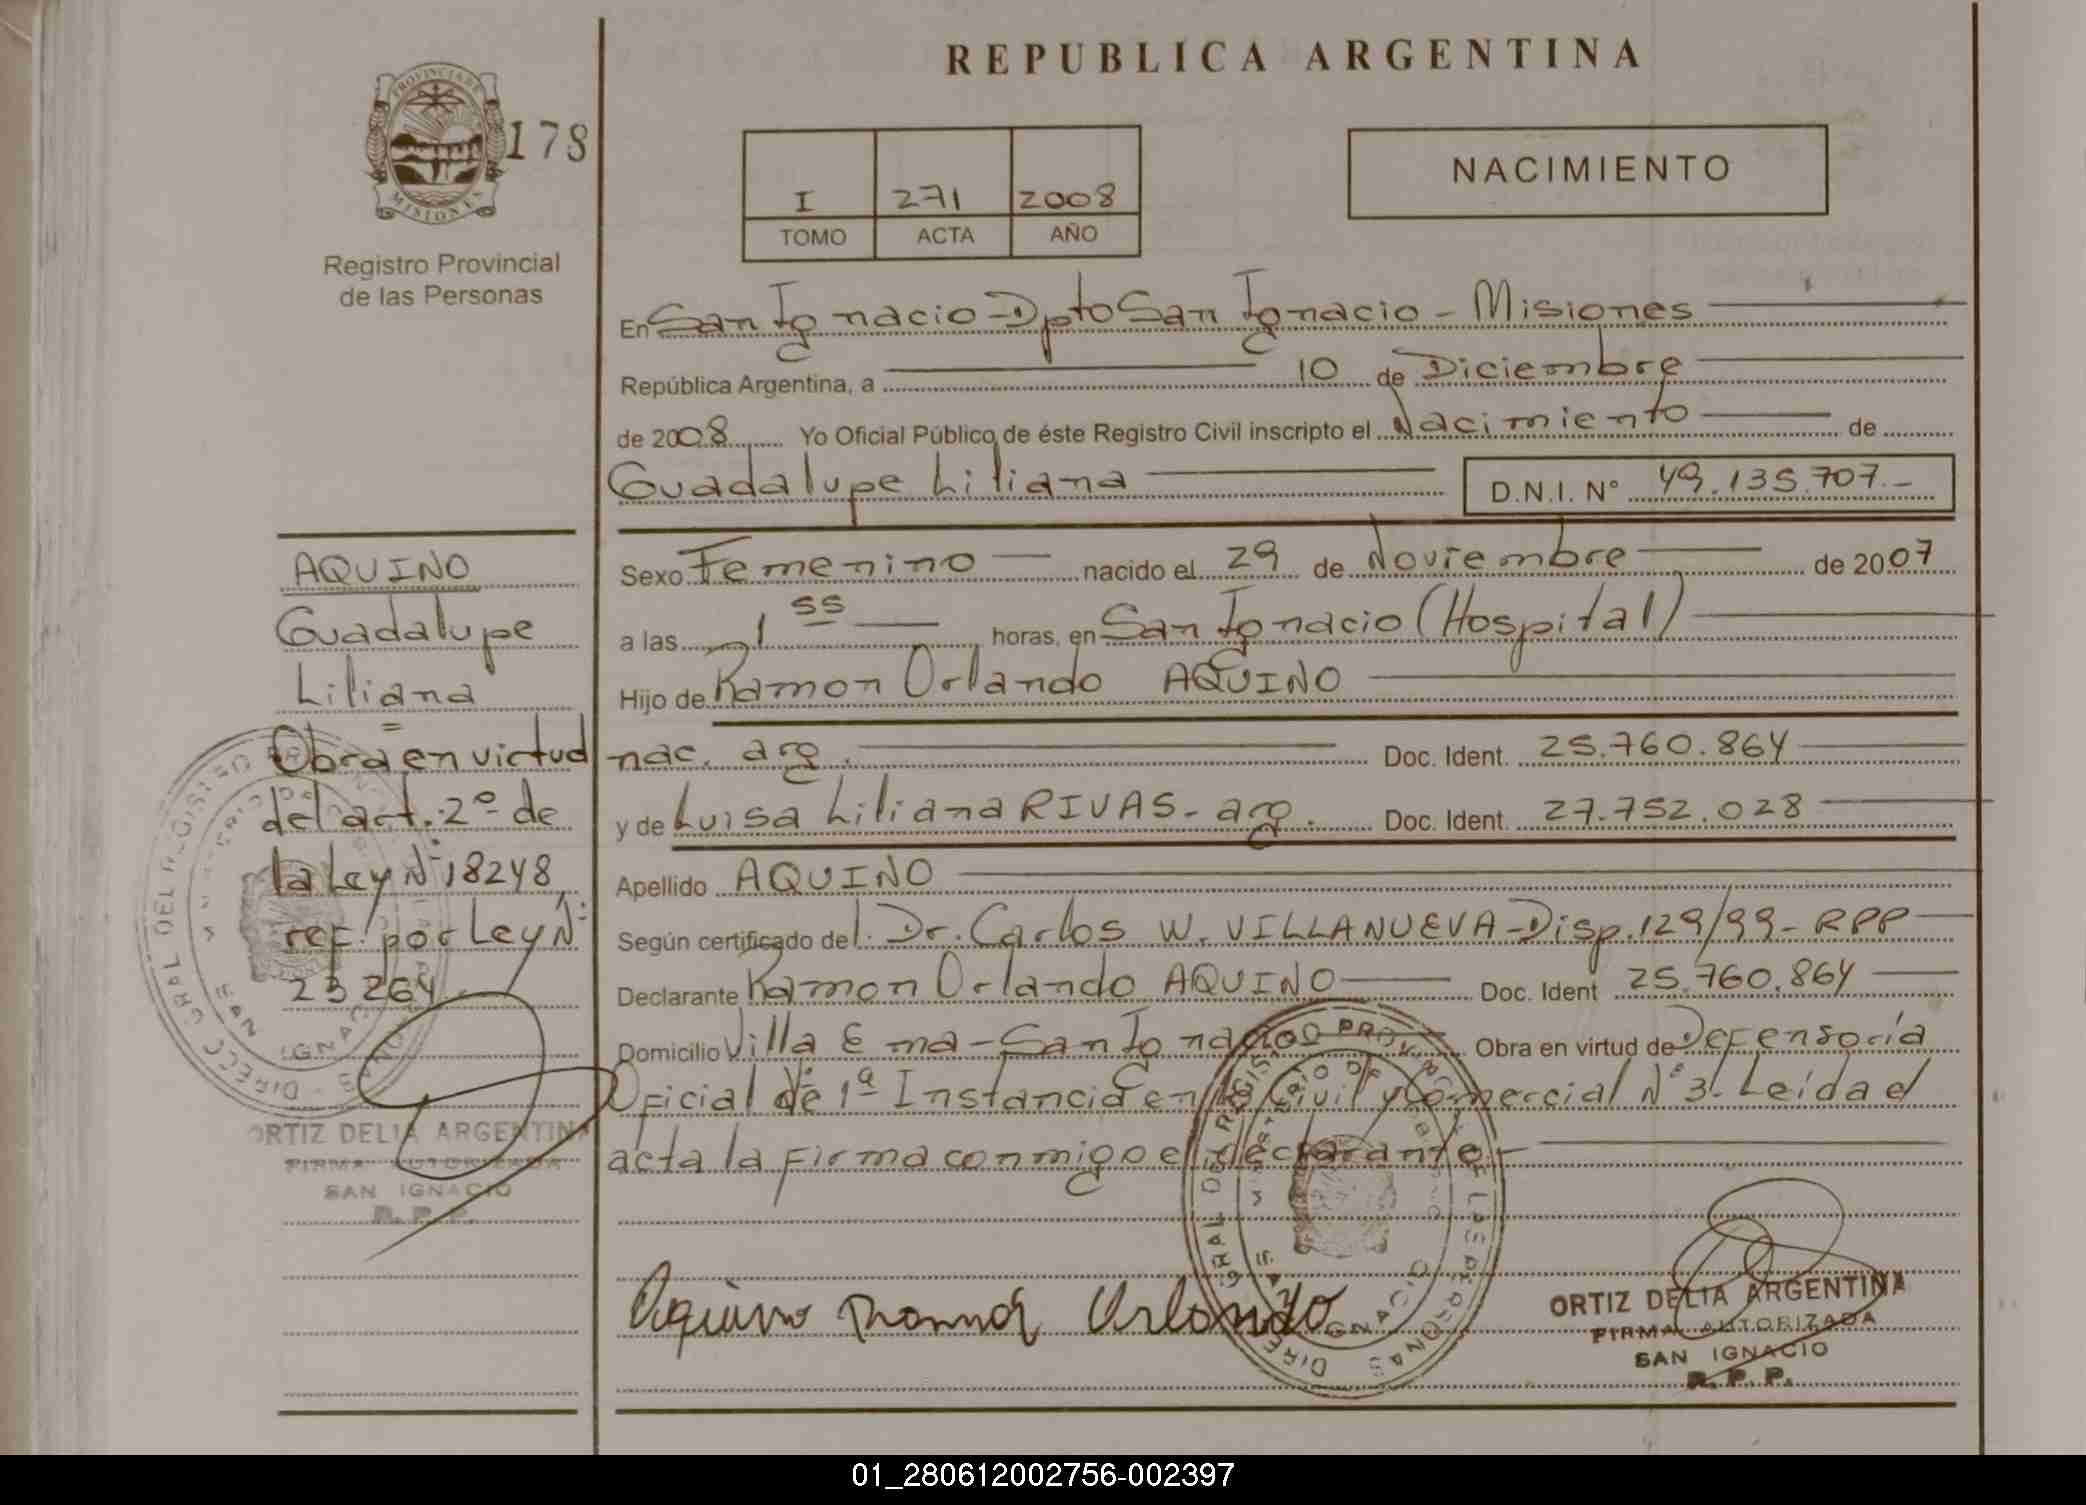 REPUBLICA ARGENTINA
PROVINCIA DE
MISIONES
178
Registro Provincial
de las Personas
I 271 2008
TOMO ACTA AÑO
NACIMIENTO
En San Ignacio - Dpto San Ignacio - Misiones
República Argentina, a 10 de Diciembre
de 2008 Yo Oficial Público de éste Registro Civil inscripto el Nacimiento de
Guadalupe Liliana D.N.I. N° 49.135.707.-
AQUINO
Guadalupe
Liliana
Obra en virtud
del art. 2º de
la Ley Nº 18248,
ref. por Ley Nº
23264
ORTIZ DELIA ARGENTINA
FIRMA AUTORIZADA
SAN IGNACIO
R. P. P.
Sexo Femenino nacido el 29 de Noviembre de 2007
a las 1 55 horas, en San Ignacio (Hospital)
Hijo de Ramon Orlando AQUINO
nac. arg. Doc. Ident. 25.760.864
y de Luisa Liliana RIVAS - arg. Doc. Ident. 27.752.028
Apellido AQUINO
Según certificado del Dr. Carlos W. VILLANUEVA - Disp. 129/99 - RPP
Declarante Ramon Orlando AQUINO Doc. Ident 25.760.864
Domicilio Villa Ema - San Ignacio Obra en virtud de Defensoría
Oficial de 1ª Instancia en lo Civil y Comercial Nº 3. Leída el
acta la firma conmigo el declarante.-
Aquino Ramon Orlando
ORTIZ DELIA ARGENTINA
FIRMA AUTORIZADA
SAN IGNACIO
R. P. P.
01_280612002756-002397